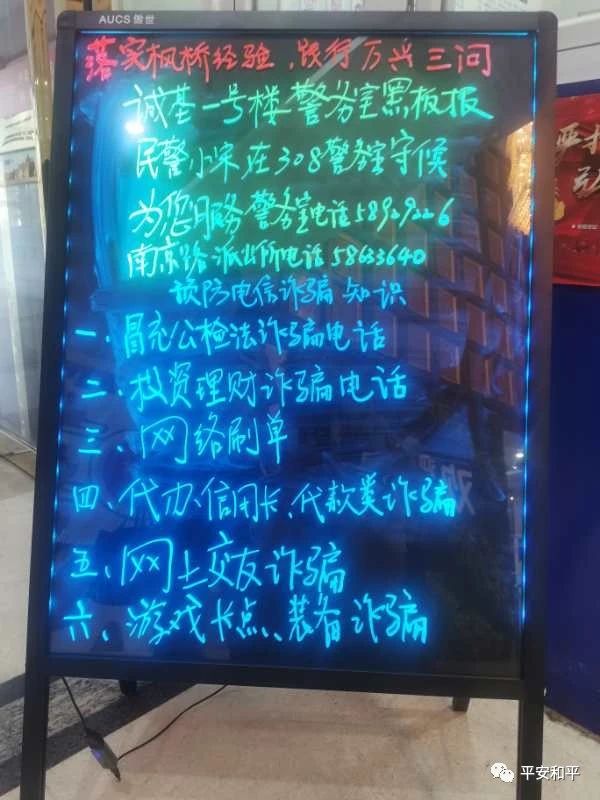 AUCS 傲世
落实枫桥经验，践行万兴三问
诚基一号楼警务室黑板报
民警小宋在308警务室守候
为您服务警务室电话58929226
南京路派出所电话58633640
预防电信诈骗知识
一、冒充公检法诈骗电话
二、投资理财诈骗电话
三、网络刷单
四、代办信用卡、代款类诈骗
五、网上交友诈骗
六、游戏卡点、装备诈骗
平安和平